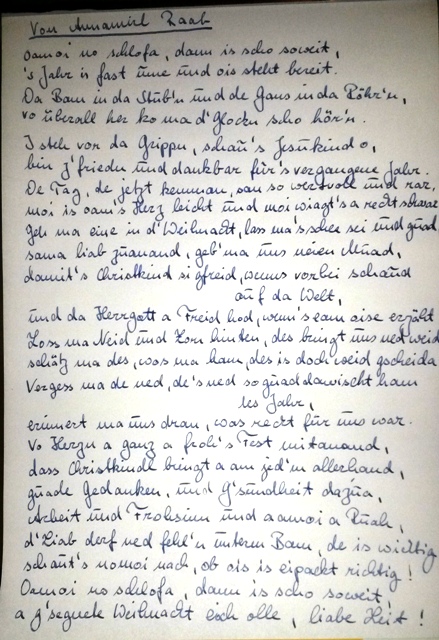 Von Annamirl Raab
Oamoi no schlofa, dann is scho soweit,
's Jahr is fast ume und ois steht bereit.
Da Bam in da Stub'n und de Gans in da Röhr'n,
vo überall her ko ma d' Glock'n scho hörn.
I steh vor da Krippn, schau's Jesukind o,
bin z'frieden und dankbar für's vergangene Jahr.
De Tag, de jetz kemman, san so wertvoll und rar,
moi is oam's Herz leicht und moi wiagt's a recht schwar
Geh ma eine in d' Weihnacht, lass ma's schee sei und guad
sama liab zuanand, geb ma uns neien Muad,
damit's Christkind si gfreid, wenn's vorbei schaud
auf da Welt,
und da Herrgott a Freid hod, wenn's eam ois e erzählt
Loss ma Neid und Zorn hinten, des bringt uns ned weid
selig ma des, wos ma ham, des is doch vui gscheida
Vergess ma de ned, de's ned so guad dawischt ham
des Jahr,
erinnert ma uns dran, wos recht für uns war.
Vo Herzn a ganz a froh's Fest mitanand,
dass Christkindl bringt a am jed'n allerhand,
guade Gedanken, und G'sundheit dazua,
Arbeit und Frohsinn und a amoi a Ruah,
d' Liab derf ned fehl'n unterm Bam, de is wichtig
schaut's nomoi nach, ob ois is eipackt richtig!
Oamoi no schlofa, dann is scho soweit
a g'segnete Weihnacht eich alle, liabe Leit!